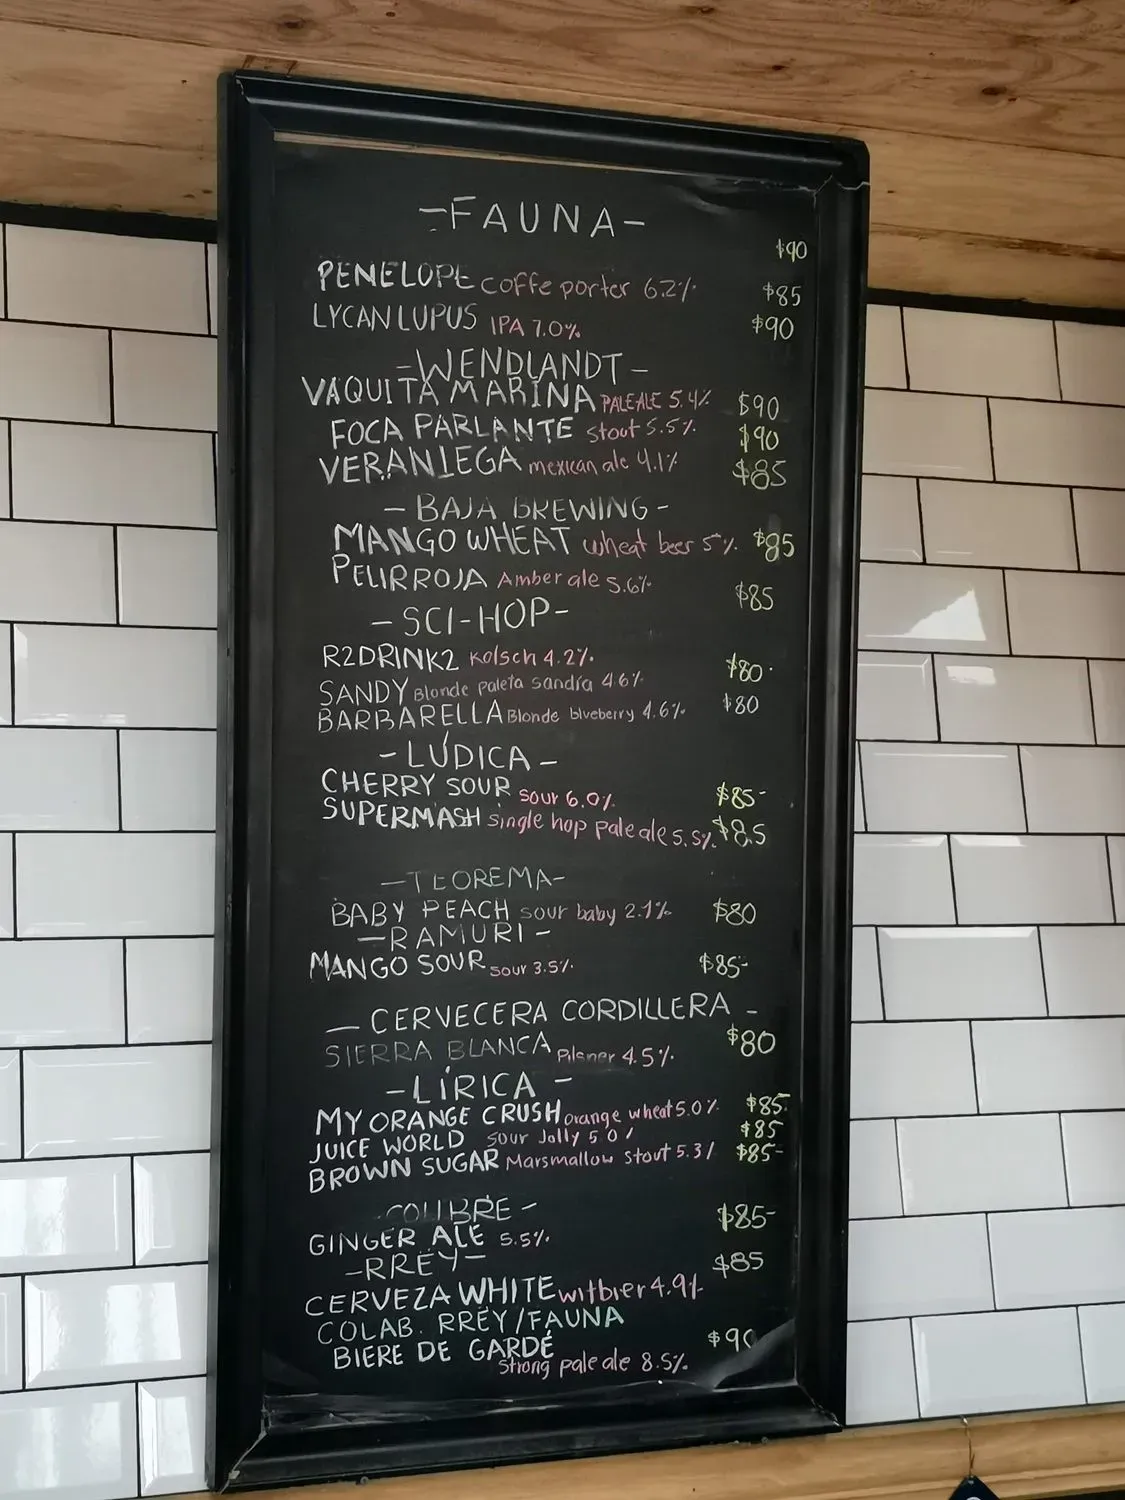 -FAUNA-
$90
PENELOPE coffe porter 6.2% $85
LYCAN LUPUS IPA 7.0% $90
-WENDLANDT-
VAQUITA MARINA PALE ALE 5.4% $90
FOCA PARLANTE stout 5.5% $90
VERANIEGA mexican ale 4.1% $85
- BAJA BREWING-
MANGO WHEAT wheat beer 5%. $85
PELIRROJA Amber ale 5.6% $85
- SCI-HOP-
R2DRINK2 Kolsch 4.2%. $80
SANDY Blonde paleta sandía 4.6%
BARBARELLA Blonde blueberry 4.6% $80
- LÚDICA -
CHERRY SOUR sour 6.0% $85-
SUPERMASH single hop pale ale 5.5% $85
-TEOREMA-
BABY PEACH sour baby 2.1% $80
-RAMURI-
MANGO SOUR sour 3.5% $85-
- CERVECERA CORDILLERA -
SIERRA BLANCA Pilsner 4.5% $80
-LÍRICA -
MY ORANGE CRUSH orange wheat 5.0% $85-
JUICE WORLD sour Jolly 5.0% $85
BROWN SUGAR Marsmallow stout 5.3% $85-
COLIBRE -
GINGER ALE 5.5%. $85-
-RRËY-
CERVEZA WHITE witbier 4.9% $85
COLAB. RRËY/FAUNA
BIERE DE GARDÉ $90
Strong pale ale 8.5%